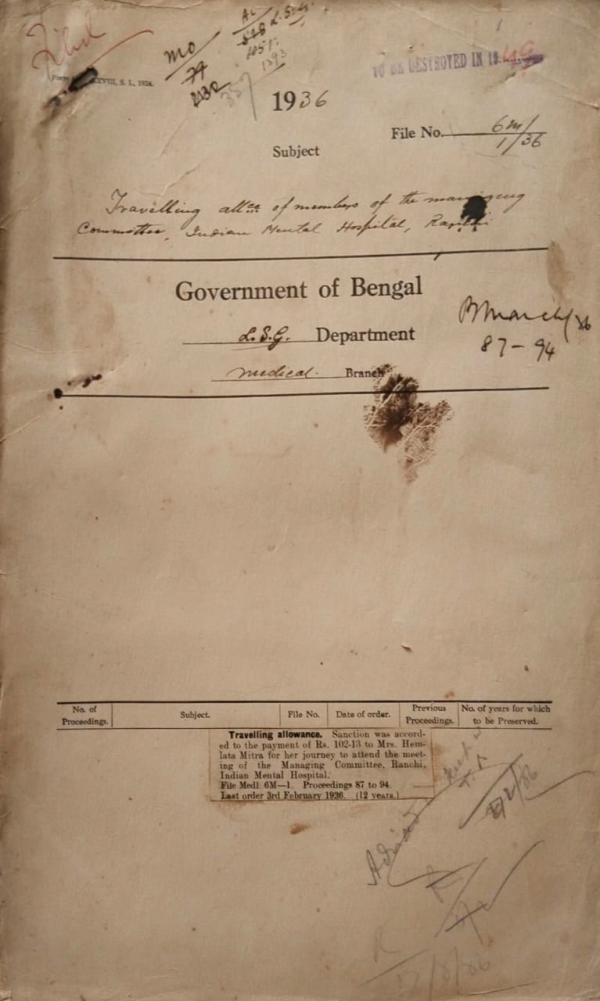 Filed
MO
TO BE DESTROYED IN 19
1936
File No. 6M/1/36
Subject
Travelling allce of members of the managing
Committee, Indian Mental Hospital, Ranchi
Government of Bengal
L.S.G. Department
B March/36
87-94
Medical Branch
No. of Proceedings. Subject. File No. Date of order. Previous Proceedings. No. of years for which to be Preserved.
Travelling allowance. Sanction was accord-
ed to the payment of Rs. 102-13 to Mrs. Hem-
lata Mitra for her journey to attend the meet-
ing of the Managing Committee, Ranchi,
Indian Mental Hospital.
File Medl. 6M—1. Proceedings 87 to 94.
Last order 3rd February 1936. (12 years.)